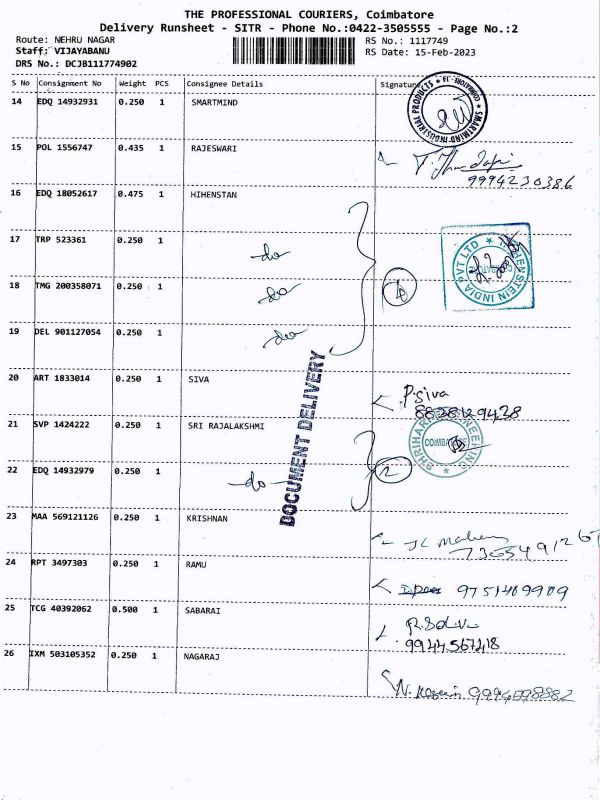 THE PROFESSIONAL COURIERS, Coimbatore
Delivery Runsheet - SITR - Phone No.:0422-3505555 - Page No.:2
Route: NEHRU NAGAR RS No.: 1117749
Staff: VIJAYABANU RS Date: 15-Feb-2023
DRS No.: DCJB111774902
S No Consignment No Weight PCS Consignee Details Signature
14 EDQ 14932931 0.250 1 SMARTMIND
SMARTMIND INDUSTRIAL PRODUCTS
15 POL 1556747 0.435 1 RAJESWARI
9994230386
16 EDQ 18052617 0.475 1 HIHENSTAN
17 TRP 523361 0.250 1 -do-
INDIA PVT LTD
18 TMG 200358071 0.250 1 do 4
19 DEL 901127054 0.250 1 do
20 ART 1833014 0.250 1 SIVA P.Siva
8828129428
DOCUMENT DELIVERY
21 SVP 1424222 0.250 1 SRI RAJALAKSHMI
22 EDQ 14932979 0.250 1 -do- 2
23 MAA 569121126 0.250 1 KRISHNAN
24 RPT 3497303 0.250 1 RAMU 9751409909
25 TCG 40392062 0.500 1 SABARAI
9944567418
26 IXM 503105352 0.250 1 NAGARAJ